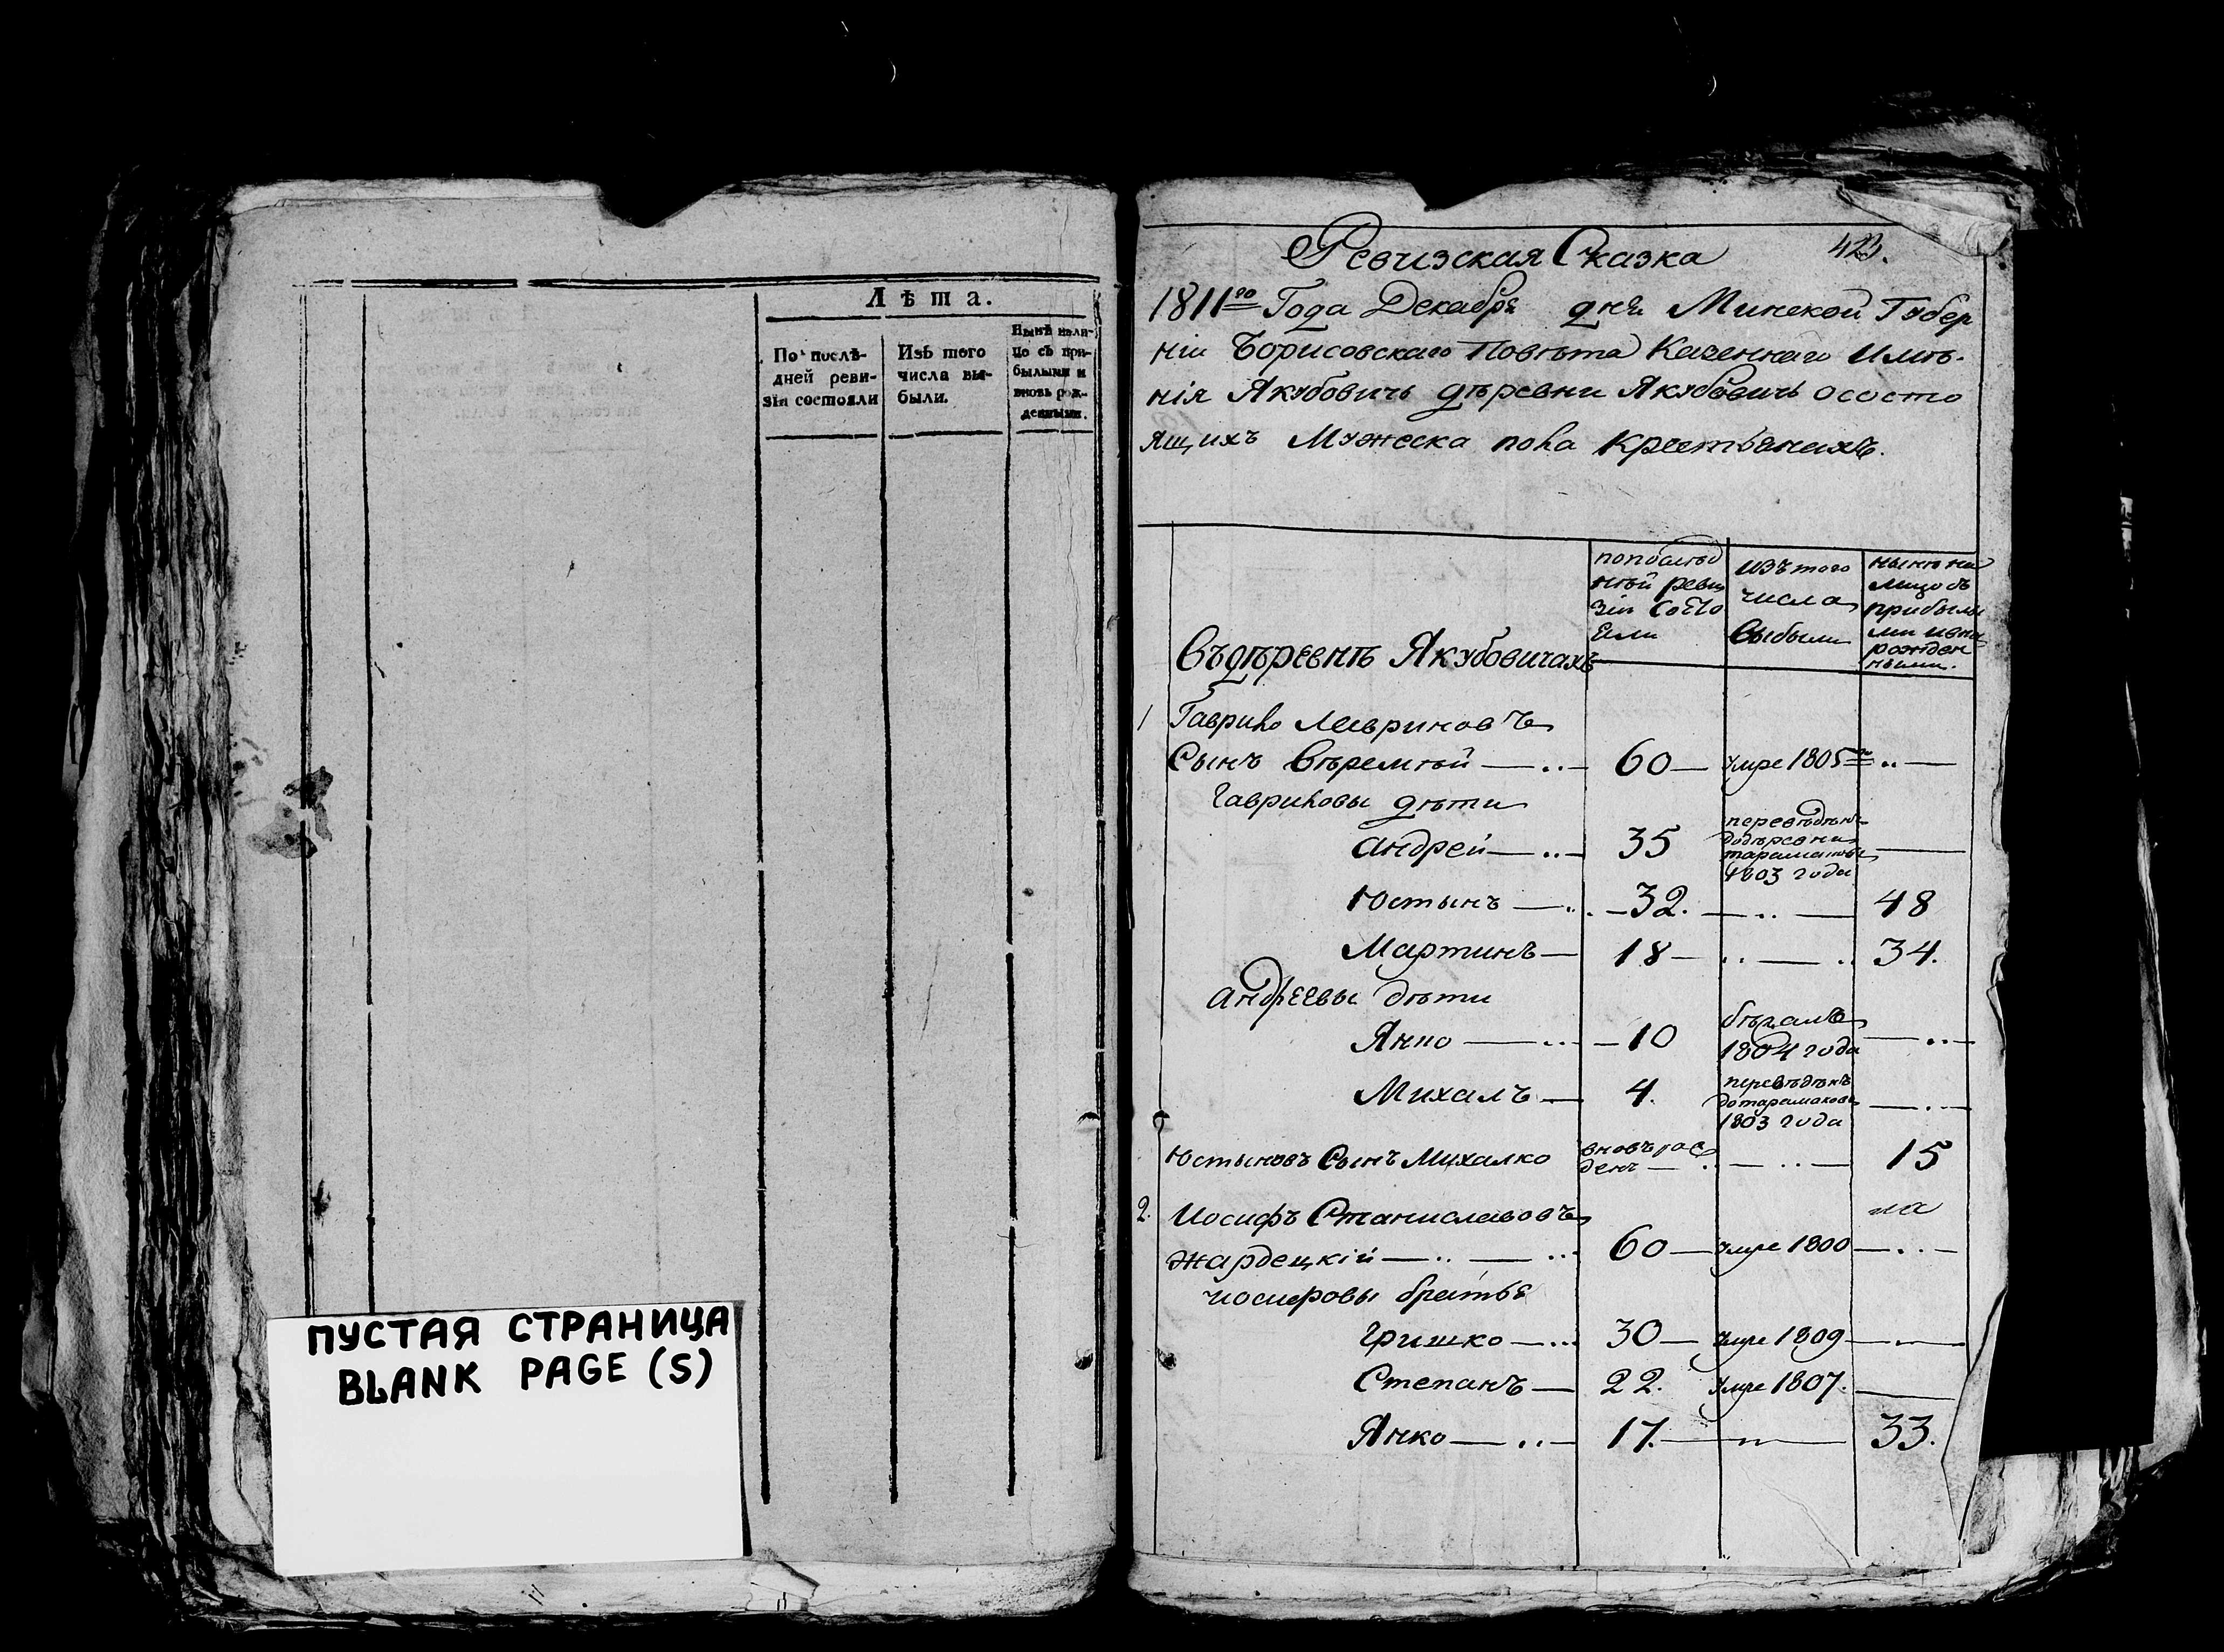 Лѣта.
По послѣ-
дней реви-
зіи состояли
Изъ того
числа вы-
были.
Нынѣ нали-
цо съ при-
былыми и
вновь рож-
денными.
ПУСТАЯ СТРАНИЦА
BLANK PAGE (S)
423.
Ревизская Сказка
1811го Года Декабря дня Минской Губер
ніи Борисовскаго Повѣта Казеннаго Имѣ-
нія Якубовичъ дѣревни Якубовичъ осостo
ящихъ Мужеска пола крестьянахъ.
попослѣд
нѣй реви
зіи Состо
яли
изъ того
числа
выбыли
нынѣ на
лицо съ
прибылы
ми ивно
рожден
ными.
Въдѣревнѣ Якубовичахъ
1 Гаврило Лавриновъ
Сынъ Вѣремѣй 60 умре 1805го
Гавриловы дѣти
Андрей 35 перевѣдѣнъ
додѣревни
1803 года
Юстынъ 32. 48
Мартинъ 18 34.
Андреевы дѣти
Янко 10 бѣгалъ
1804 года
Михалъ 4. перевѣдѣнъ
1803 года
Юстыновъ Сынъ Михалко вновърож
денъ 15
2. Иосифъ Станиславовъ на
Жардецкій 60 умре 1800
Иосифовы братья
Гришко 30 умре 1809
Степанъ 22. умре 1807.
Янко 17. 33.